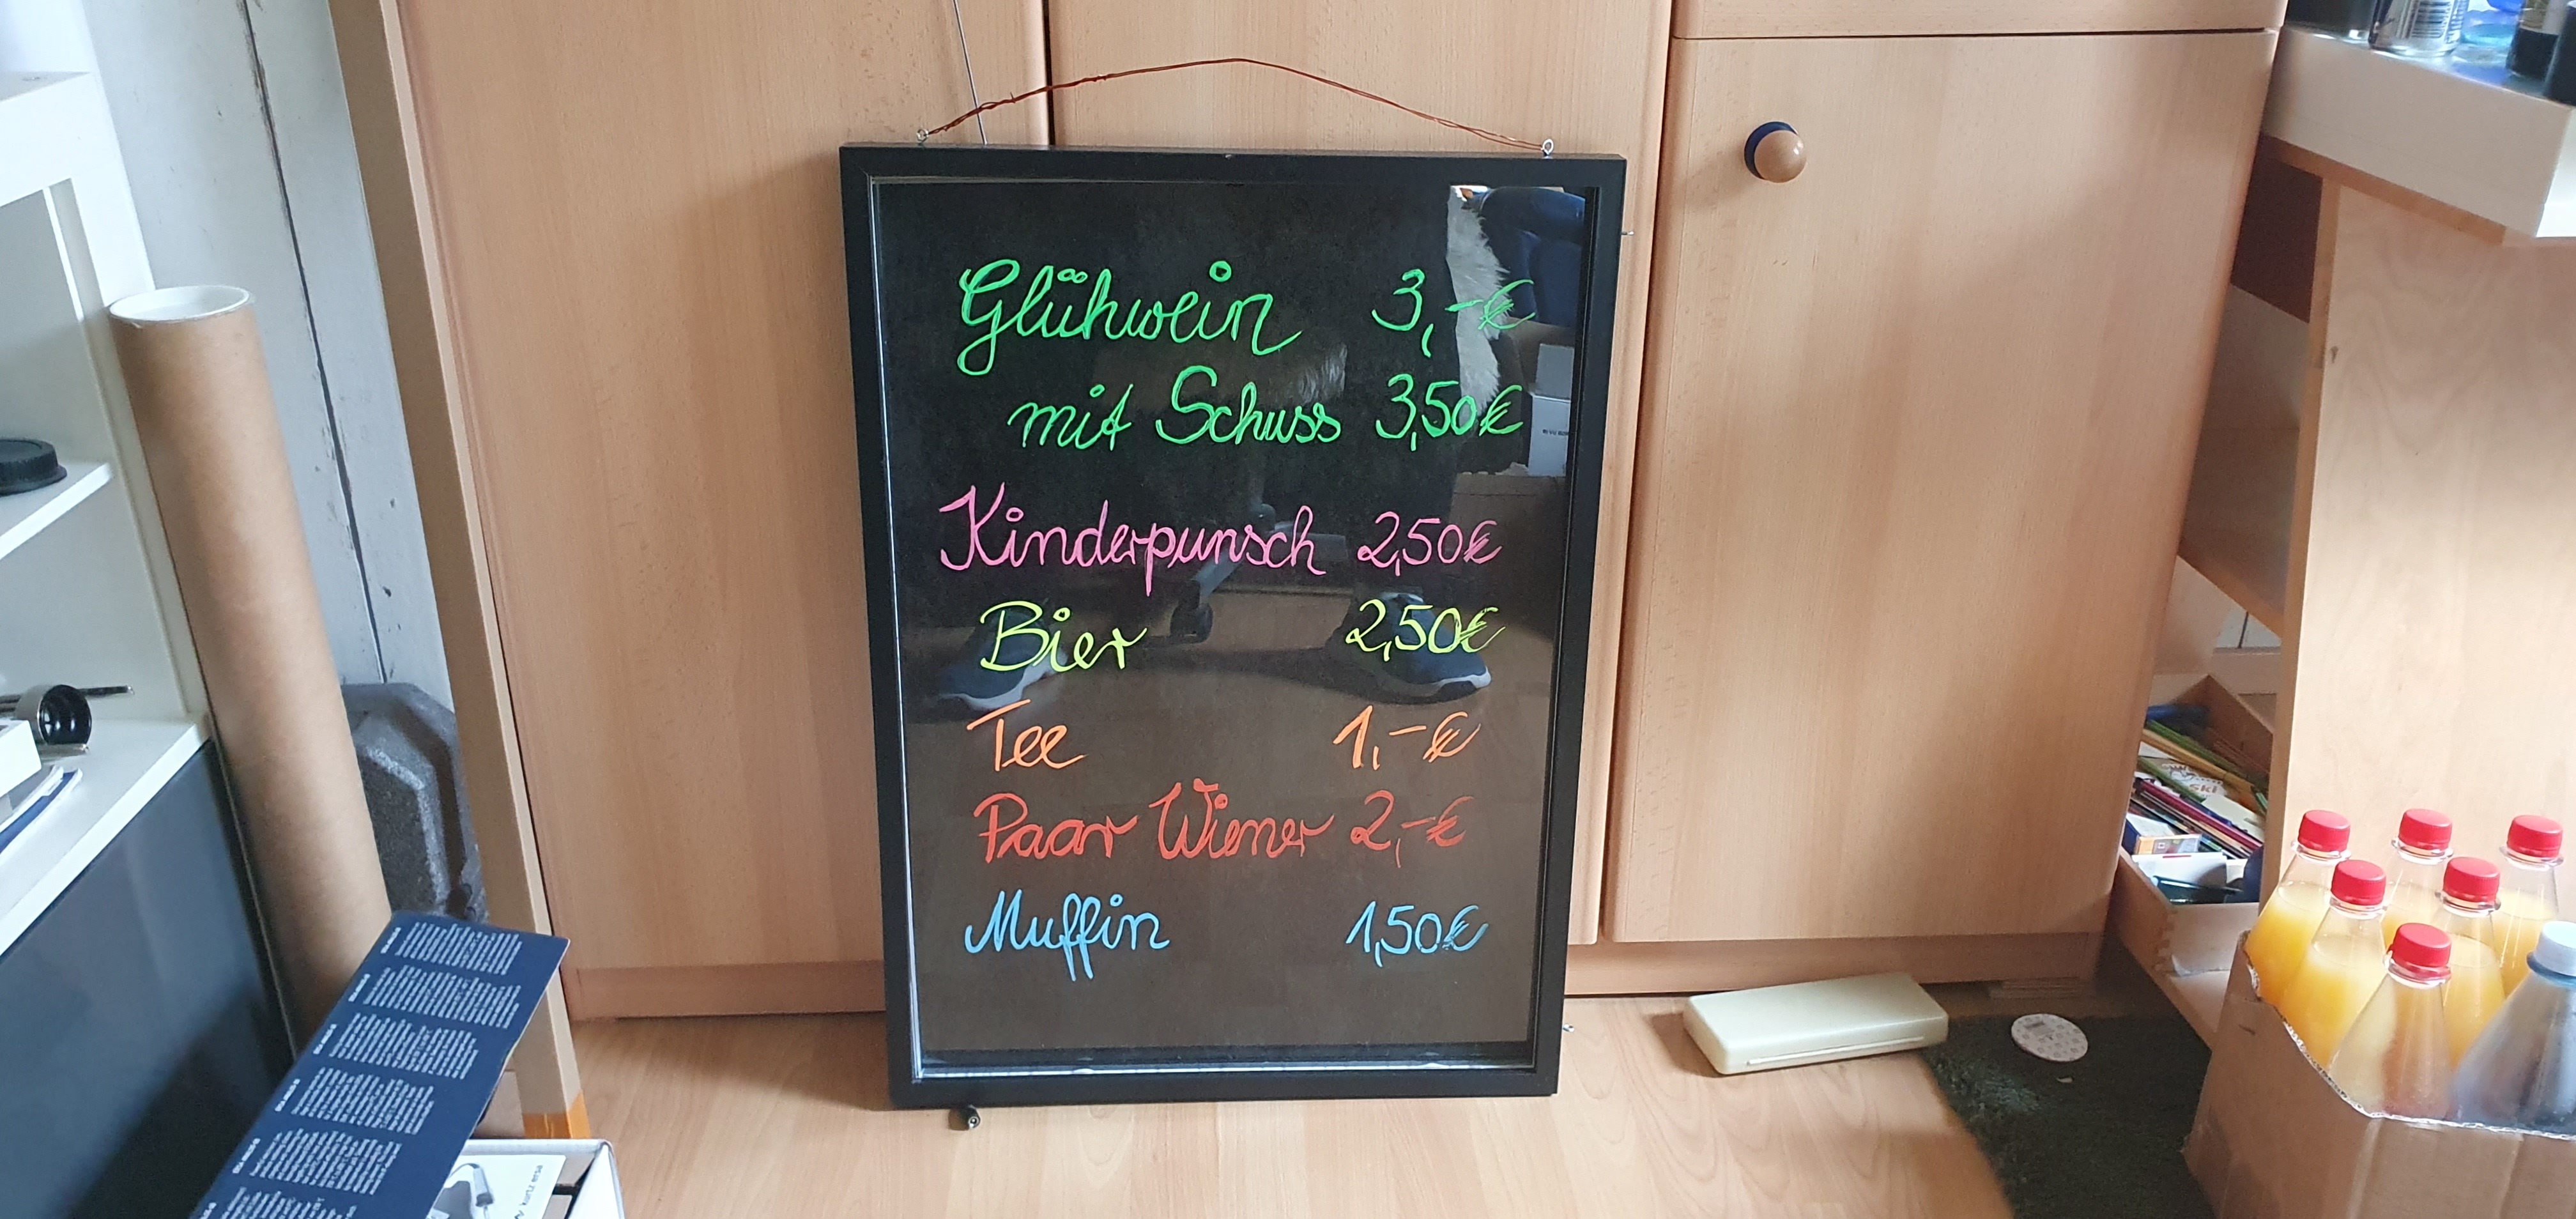 Glühwein 3,-€
mit Schuss 3,50€
Kinderpunsch 2,50€
Bier 2,50€
Tee 1,-€
Paar Wiener 2,-€
Muffin 1,50€
kurtz ersa